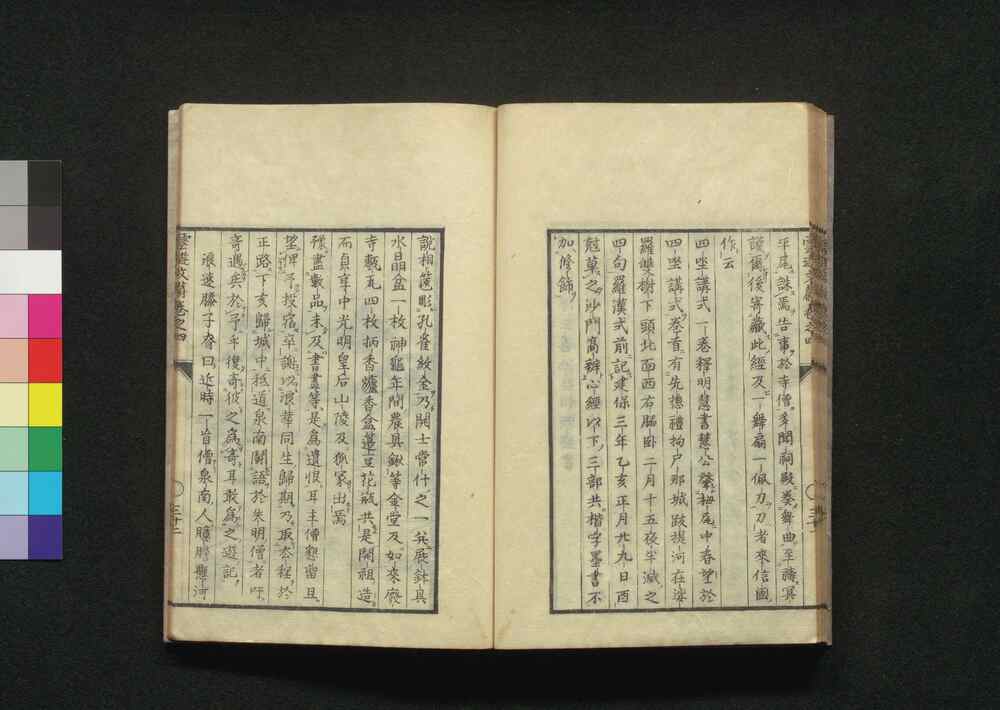 平尾誅焉告事於寺僧多聞祠殿奏舞曲至禱冥
護爾後寄藏此經及一舞扇一佩刀刀者來信國
作云
四座講式一卷釋明慧書慧公發梅尾中春望於
四座講式卷首有先德禮拘尸那城跋提河在娑
羅雙樹下頭北面西右脇臥二月十五夜半滅之
四句羅漢式前記建保三年乙亥正月廿九日酉
剋草之沙門高辨心經以下三部共楷字墨書不
加修飾
說相箱彫孔雀紋金乃開士常什之一矣展鉢具
水晶盆一枚神龜年間農具鍬等金堂及如來廢
寺甎瓦四枚柄香爐香盒蓮豆花瓶共是開祖造
石貞享中光明皇后山陵及狐冢出焉
殘畫數品未及書畫等是為遺恨耳主僧懇留且
望俾予投宿卒謝以浪華同生歸期乃取杰程於
正路下亥歸城中抵道泉南關語於朱明僧者吁
奇遇矣於予乎復奇彼之為奇耳敢為之遊記
浪迷勝子春曰近時一盲僧泉南人臆膽懸河